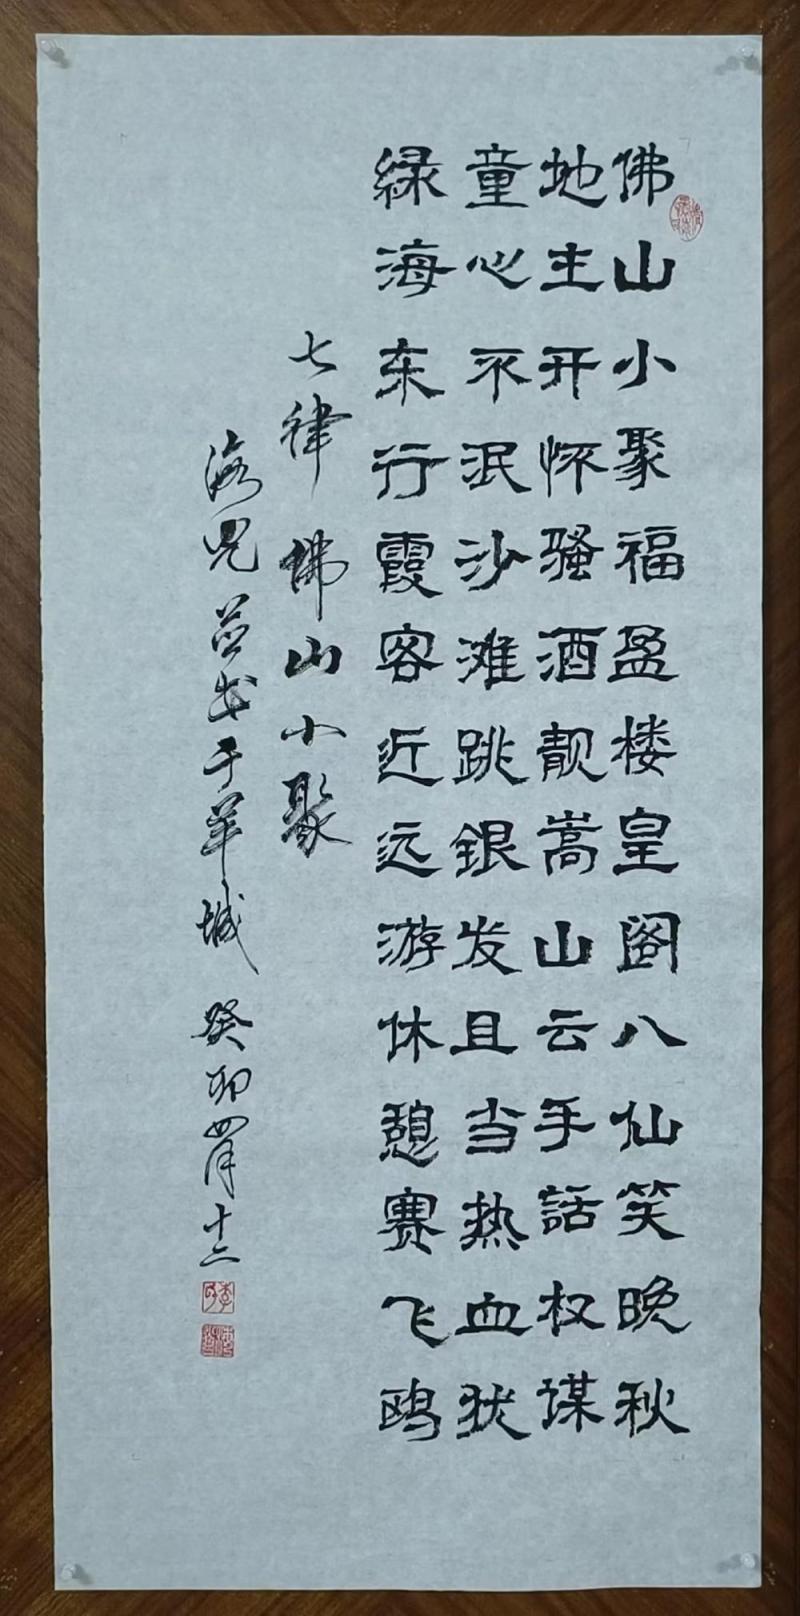 佛山小聚福盈楼皇阁八仙笑晚秋
地主开怀骚酒靓嵩山云手話权谋
童心不泯沙滩跳银发且当热血犹
緑海东行霞客近远游休憩赛飞鸥
七律 佛山小聚
海思并书于羊城 癸卯四月十二